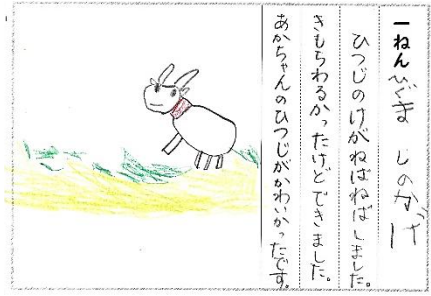 一ねん ひぐま
ひつじのけがねばねばしました。
きもちわるかったけどできました。
あかちゃんのひつじがかわいかったです。